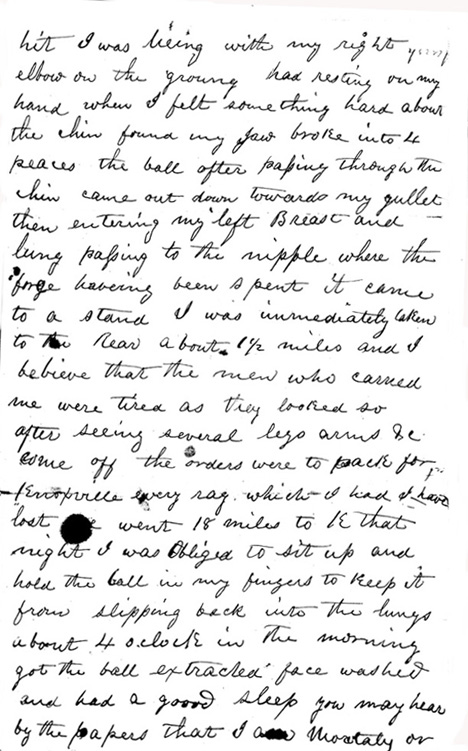 hit I was lieing with my right
elbow on the groung had resting on my
hand when I felt something hard about
the chin found my Jaw broke into 4
peaces the ball after passing through the
chin came out down towards my gullet
then entering my left Breast and
lung passing to the nipple where the
forge haveing been spent it came
to a stand I was immediately taken
to the Rear about 1½ miles and I
believe that the men who carried
me were tired as they looked so
after seeing several legs arms &c
come off the orders were to pack for
Knoxville every rag which I had I have
lost went 18 miles to K that
night I was Obliged to sit up and
hold the ball in my fingers to keep it
from slipping back into the lungs
about 4 oclock in the morning
got the ball extracted face washed
and had a goood sleep you may hear
by the papers that I am Mortaly or